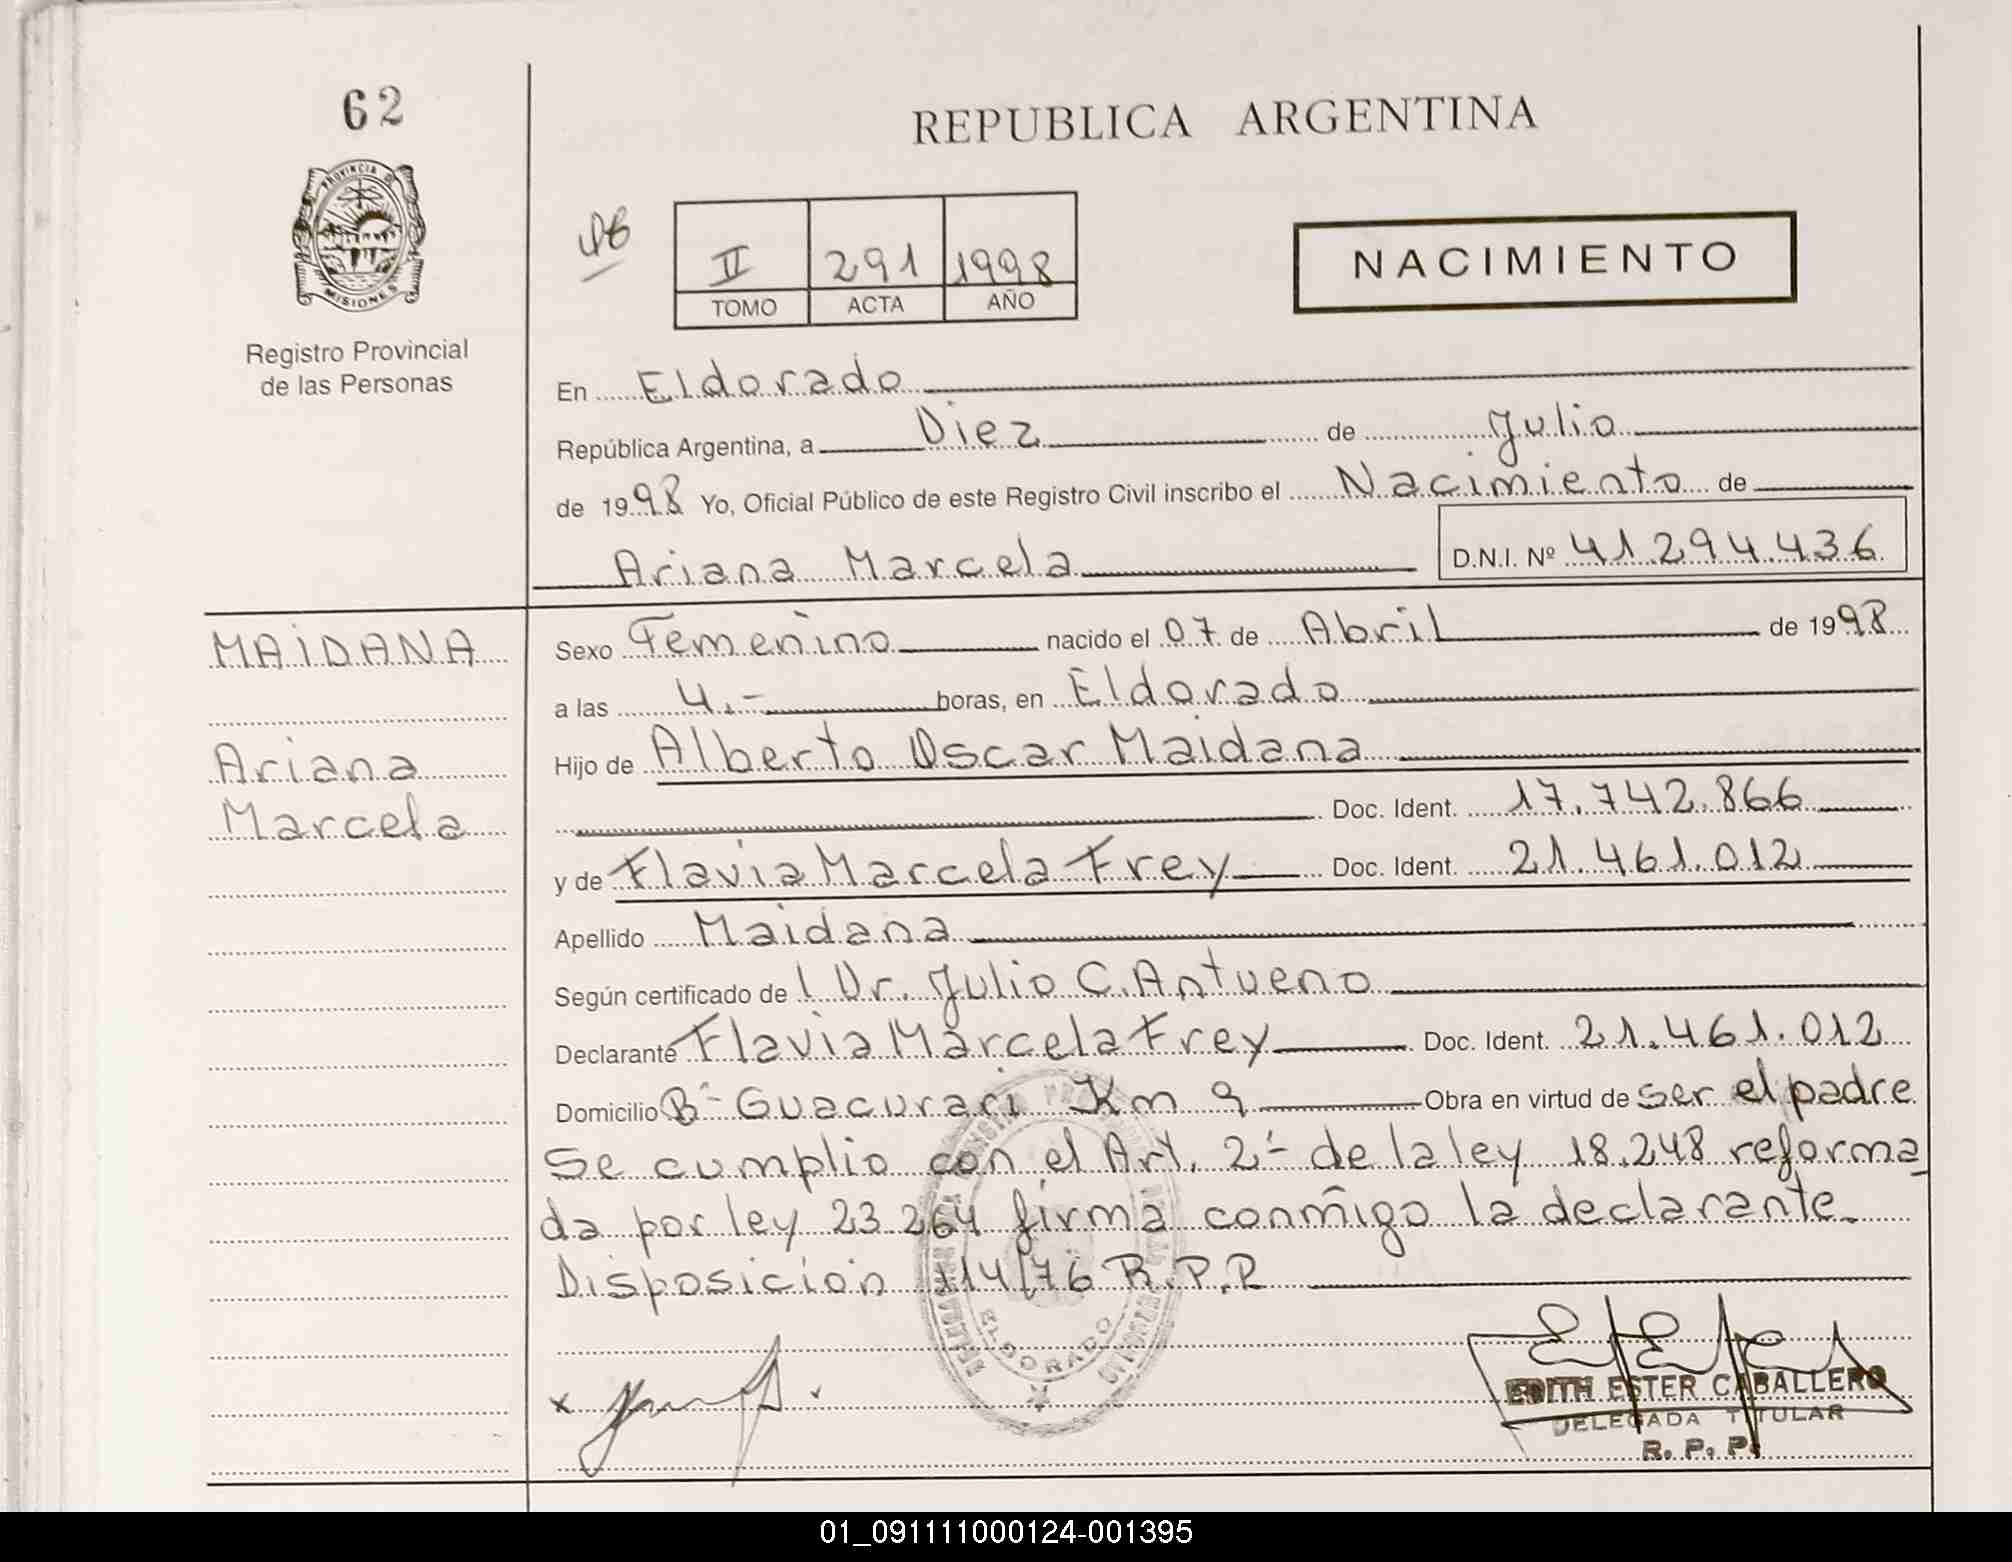 62
REPUBLICA ARGENTINA
PROVINCIA D
MISIONES
Registro Provincial
de las Personas
II 291 1998
TOMO ACTA AÑO
NACIMIENTO
En Eldorado
República Argentina, a Diez de Julio
de 1998 Yo, Oficial Público de este Registro Civil inscribo el Nacimiento de
Ariana Marcela D.N.I. Nº 41.294.436
MAIDANA
Ariana
Marcela
Sexo Femenino nacido el 07 de Abril de 1998
a las 4.- horas, en Eldorado
Hijo de Alberto Oscar Maidana
Doc. Ident. 17.742.866
y de Flavia Marcela Frey Doc. Ident. 21.461.012
Apellido Maidana
Según certificado de l Dr. Julio C. Antueno
Declarante Flavia Marcela Frey Doc. Ident. 21.461.012
Domicilio Bº Guacurari Km 9 Obra en virtud de ser el padre
Se cumplio con el Art. 2º de la ley 18.248 reforma
da por ley 23.264 firma conmigo la declarante.
Disposicion 114/76 R.P.P
ELDORADO
EDITH ESTER CABALLERO
DELEGADA TITULAR
R. P. P.
01_091111000124-001395